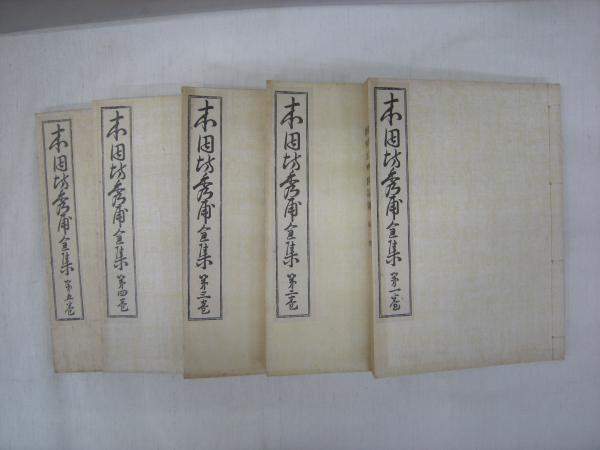 本因坊秀甫全集 第一巻
本因坊秀甫全集 第二巻
本因坊秀甫全集 第三巻
本因坊秀甫全集 第四巻
本因坊秀甫全集 第五巻